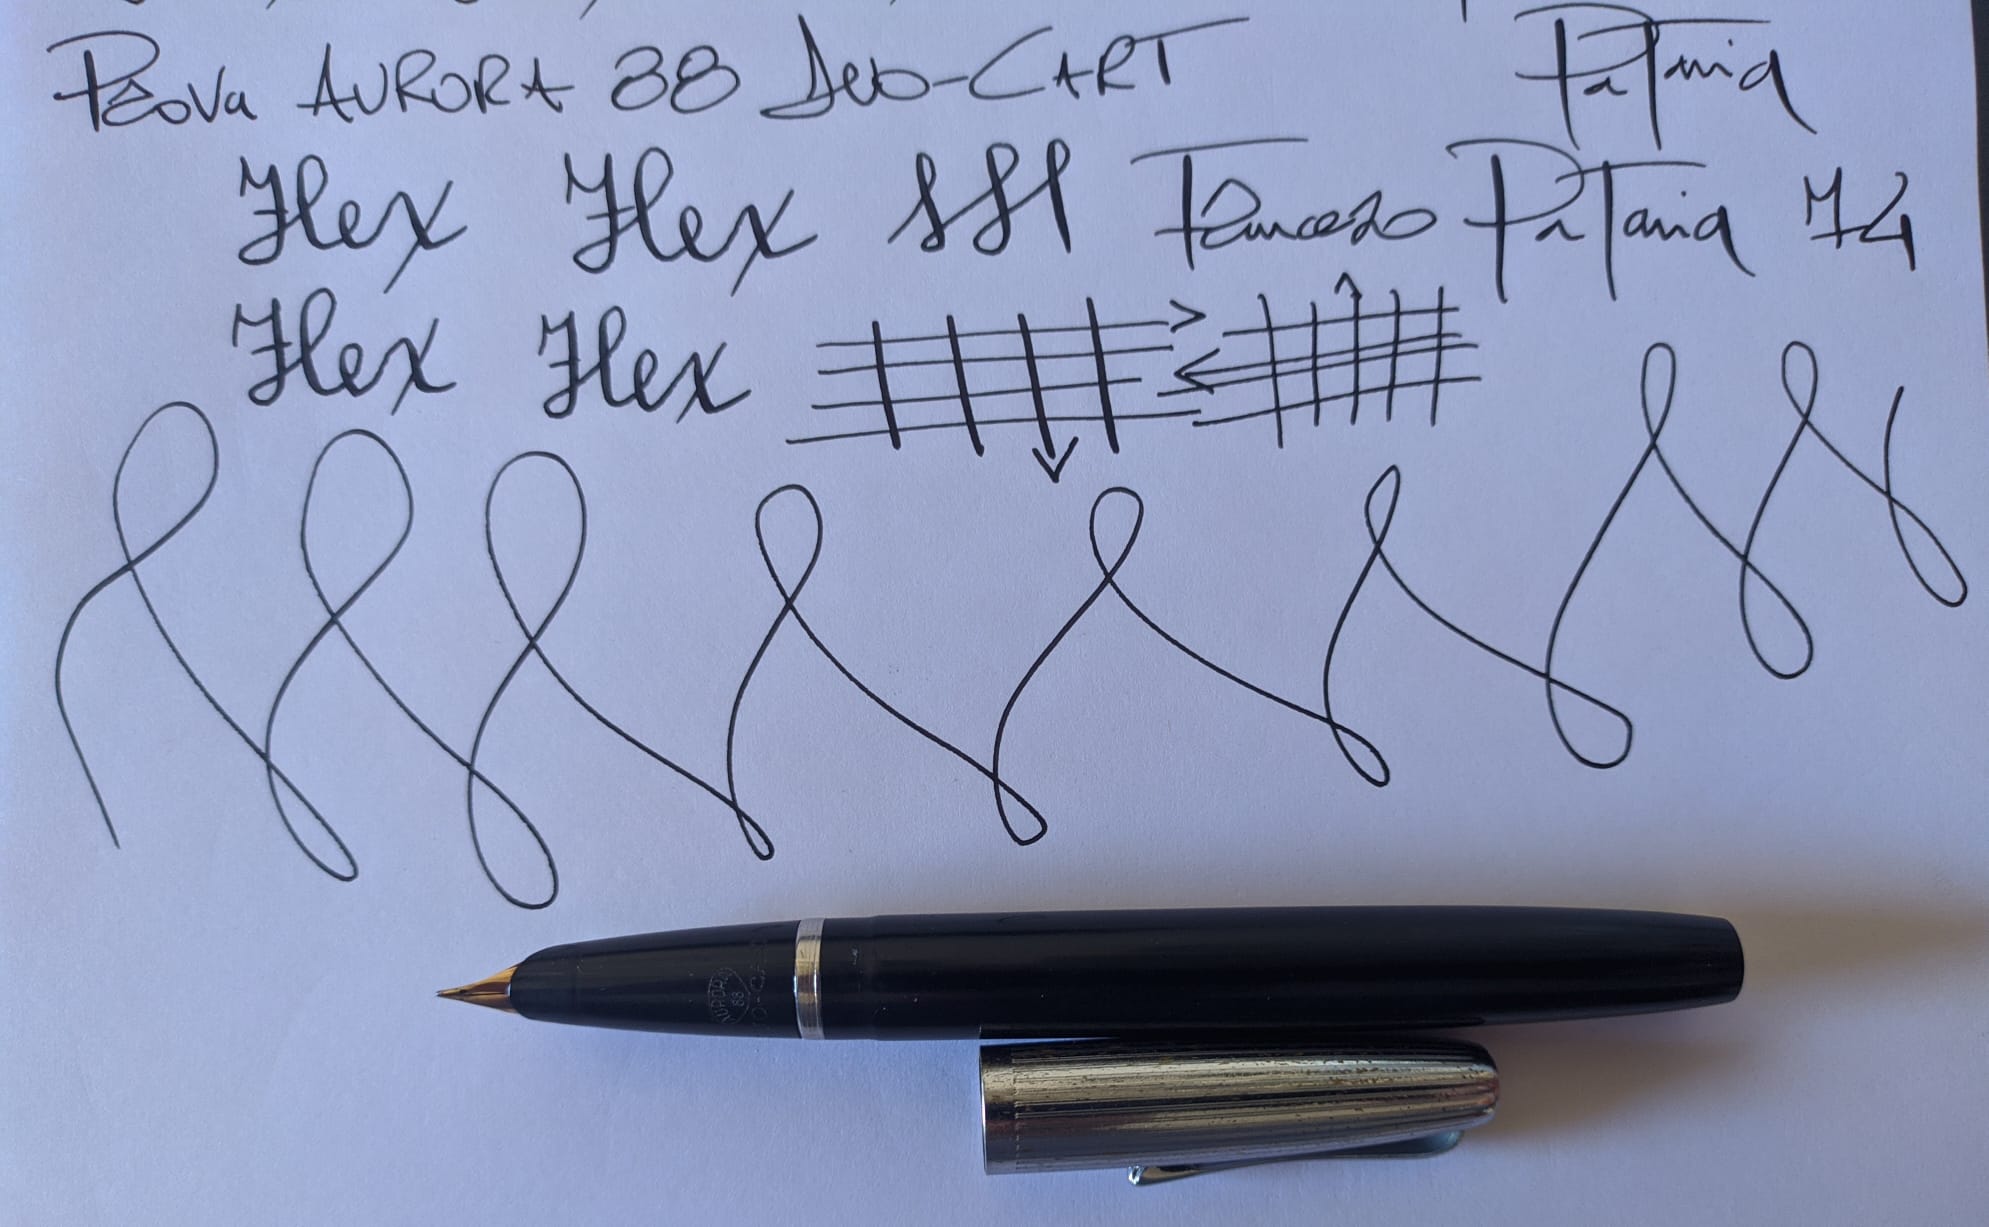 Prova AURORA 88 Duo-CART
Patania
Flex Flex Francesco Patania 74
Flex Flex
AURORA
88
DUO-CART